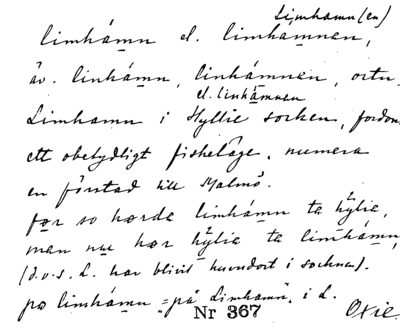 Limhamn (en)
limhámn el. limhamnen,
äv. linhámn, linhámnen, ortn.
el. linhämnen
Limhamn i Hyllie socken, fordom
ett obetydligt fiskeläge, numera
en förstad till Malmö.
før so hørde limhámn ta hylie,
man nu hør hylie ta limhámn,
(d.v.s. L. har blivit huvudort i socknen).
pø limhámn = på Limhamn, i L.
Nr 367
Oxie